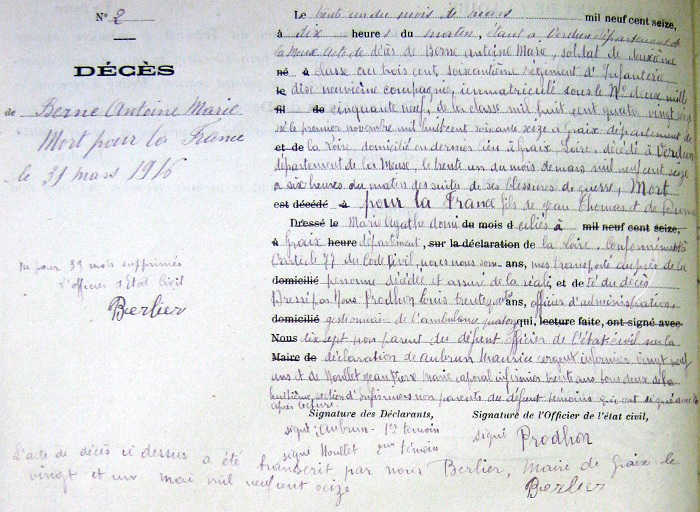 N° 2
DÉCÈS
de Berne Antoine Marie
Mort pour la France
le 31 mars 1916
Vu pour 39 mots supprimés
L'officier d'Etat Civil
Berlier
Le trente un du mois de mars mil neuf cent seize,
à dix heures du matin, étant à Verdun département de
la Meuse Acte de décès de Berne Antoine Marie, soldat de deuxième
né à classe au trois cent soixantième régiment d'Infanterie
le dix neuvième compagnie, immatriculé sous le N° deux mille
fil de cinquante neuf, de la classe mil huit cent quatre vingt seize
né le premier novembre mil huit cent soixante seize à Graix département de
et de la Loire, domicilié en dernier lieu à Graix Loire, décédé à Verdun
département de la Meuse, le trente un du mois de mars mil neuf cent seize
à six heures du matin des suites de ses blessures de guerre, Mort
est décédé à pour la France fils de Jean Thomas et de
Dressé le Marie Agathe domi du mois d ciliés à mil neuf cent seize,
à Graix heure département, sur la déclaration de la Loire. Conformément à
l'article 77 du Code Civil, nous nous som- ans, mes transporté auprès de la
domicilié personne décédée et assuré de la réali, et de té du décès
Dressé par Nous Prodhon Louis trente quatre ans, officier d'administration
domicilié gestionnaire de l'ambulance qui, lecture faite, ont signé avec
Nous dix sept non parent du défunt officier de l'état civil sur la
Maire de déclaration de Aubrun Maurice sergent infirmier vingt neuf
ans et de Noullet Jean Pierre Marie caporal infirmier trente ans tous deux de la
huitième section d'Infirmiers non parents du défunt témoins qui ont signé avec
après lecture
Signature des Déclarants, Signature de l'Officier de l'état civil,
signé : Aubrun - 1er témoin
signé Noullet 2me témoin
signé Prodhon
L'acte de décès ci dessus a été transcrit par nous Berlier, Maire de Graix le
vingt et un mai mil neuf cent seize
Berlier